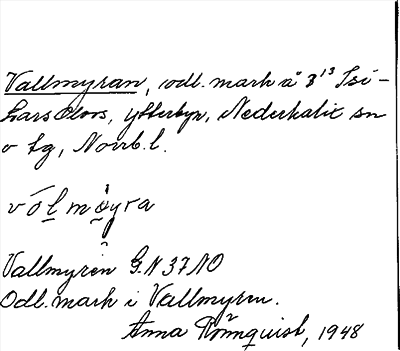 Vallmyran, odl. mark å 3¹³ Isi-
Lars Olovs, Ytterbyn, Nederkalix sn
o tg, Norrb. l.
vólmøyra
Vallmyren G.N 37 NO
Odl. mark i Vallmyren.
Anna Rönnquist, 1948